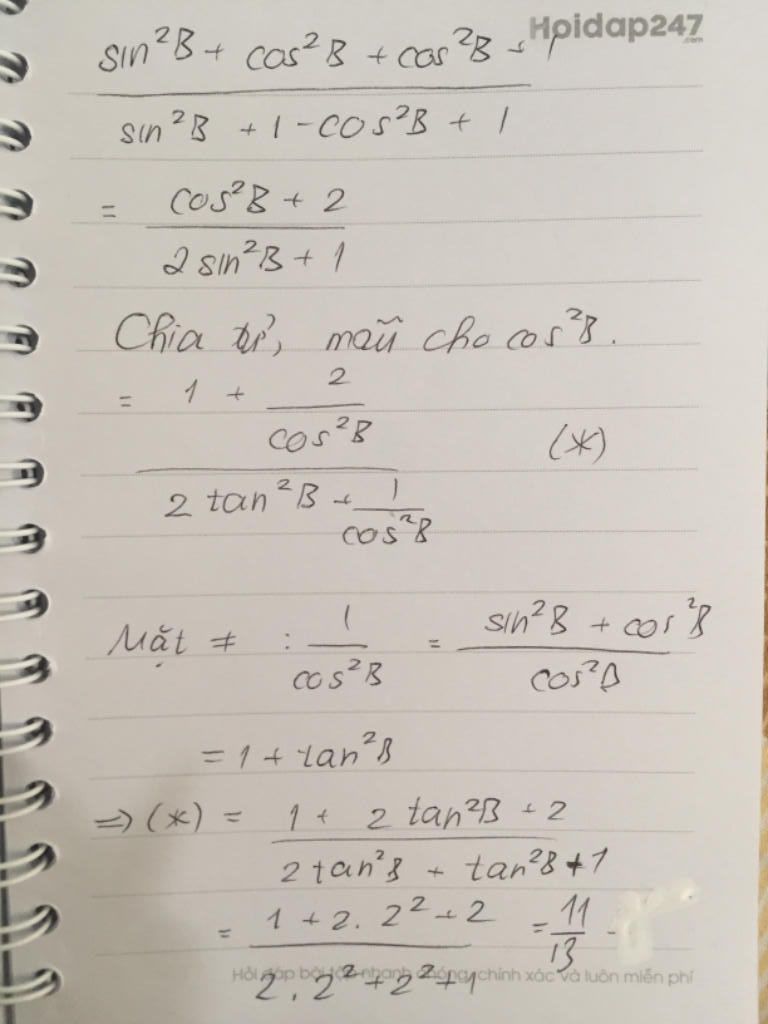 Hoidap247
.com
sin²B + cos²B + cos²B + 1
sin²B + 1 - cos²B + 1
= cos²B + 2
2 sin²B + 1
Chia tử, mẫu cho cos²B.
= 1 + 2
cos²B
(*)
2 tan²B + 1
cos²B
Mặt ≠ : 1 = sin²B + cos²B
cos²B cos²B
= 1 + tan²B
=> (*) = 1 + 2 tan²B + 2
2 tan²B + tan²B + 1
= 1 + 2. 2² + 2 = 11
2. 2² + 2² + 1 13
Hỏi đáp bài tập nhanh chóng, chính xác và luôn miễn phí